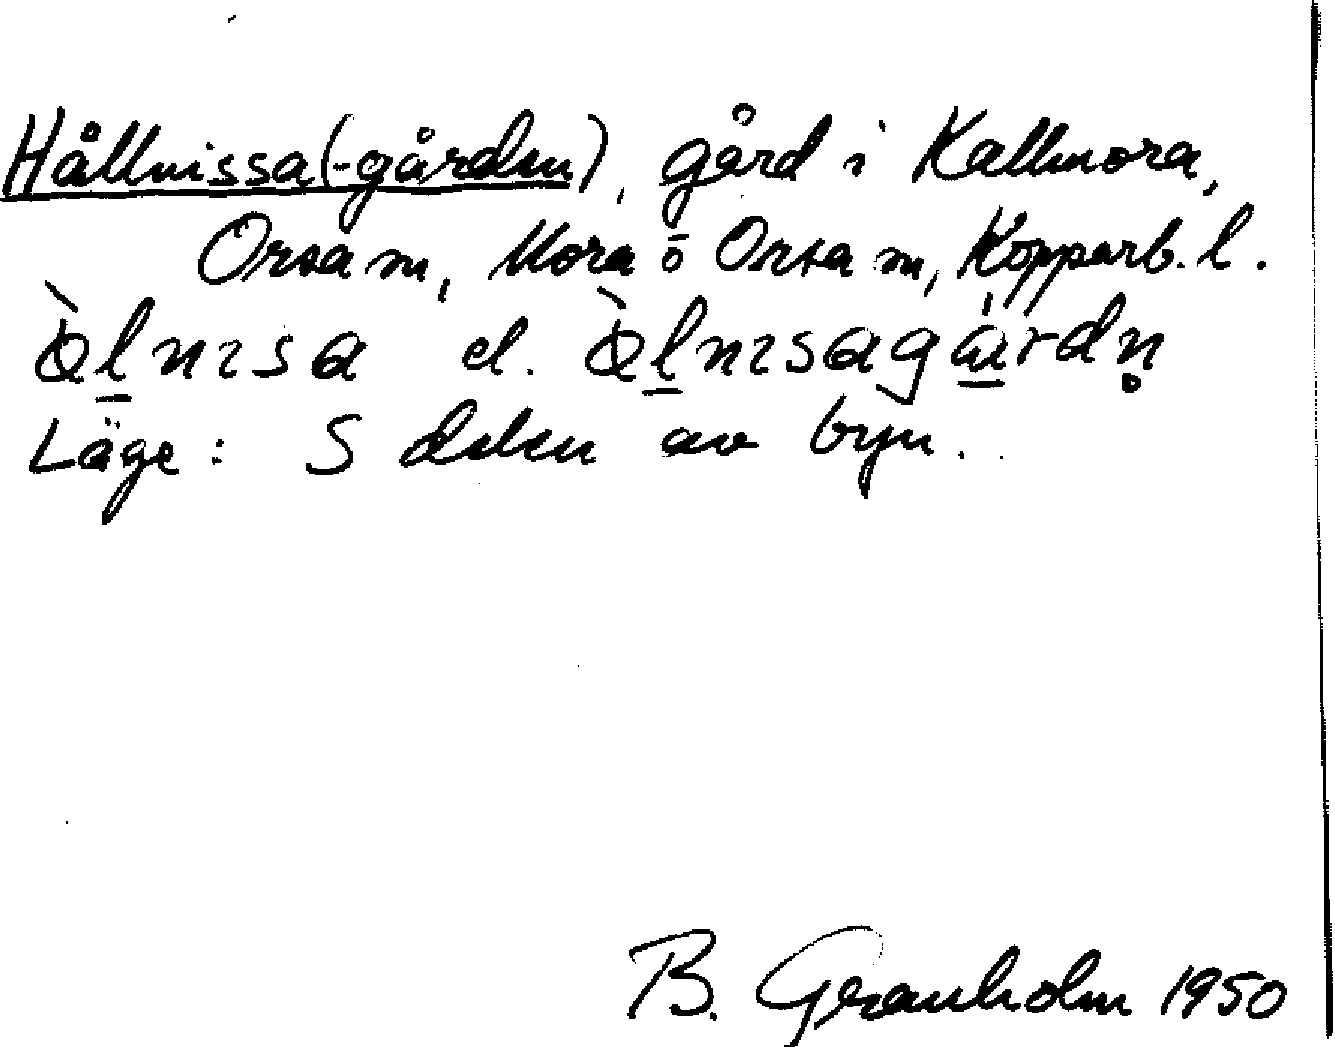 Hållnissa(-gården), gård i Kallmora,
Orsa sn, Mora o Orsa sn, Kopparb. l.
el.
Läge: S delen av byn.
B. Granholm 1950